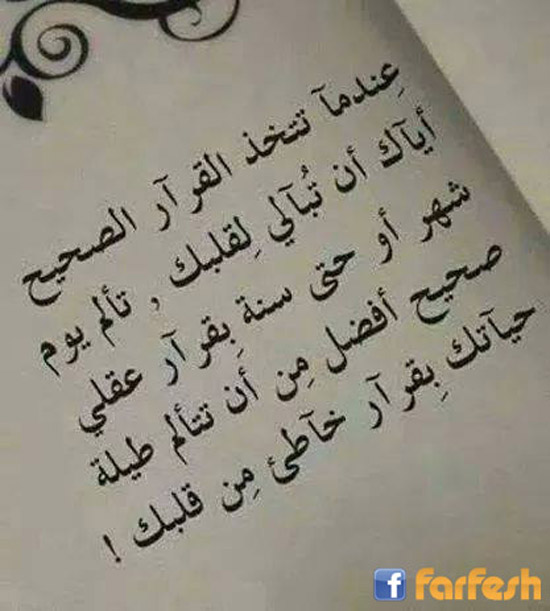 عِندمآ تتخذ القرآر الصحيح
أيآك أن تُبآلي لِقلبك , تألم يوم
شهر أو حتى سنة بِقرآر عقلي
صحيح أفضل مِن أن تتألم طيلة
حيآتك بِقرآر خآطئ مِن قلبك !
f farfesh